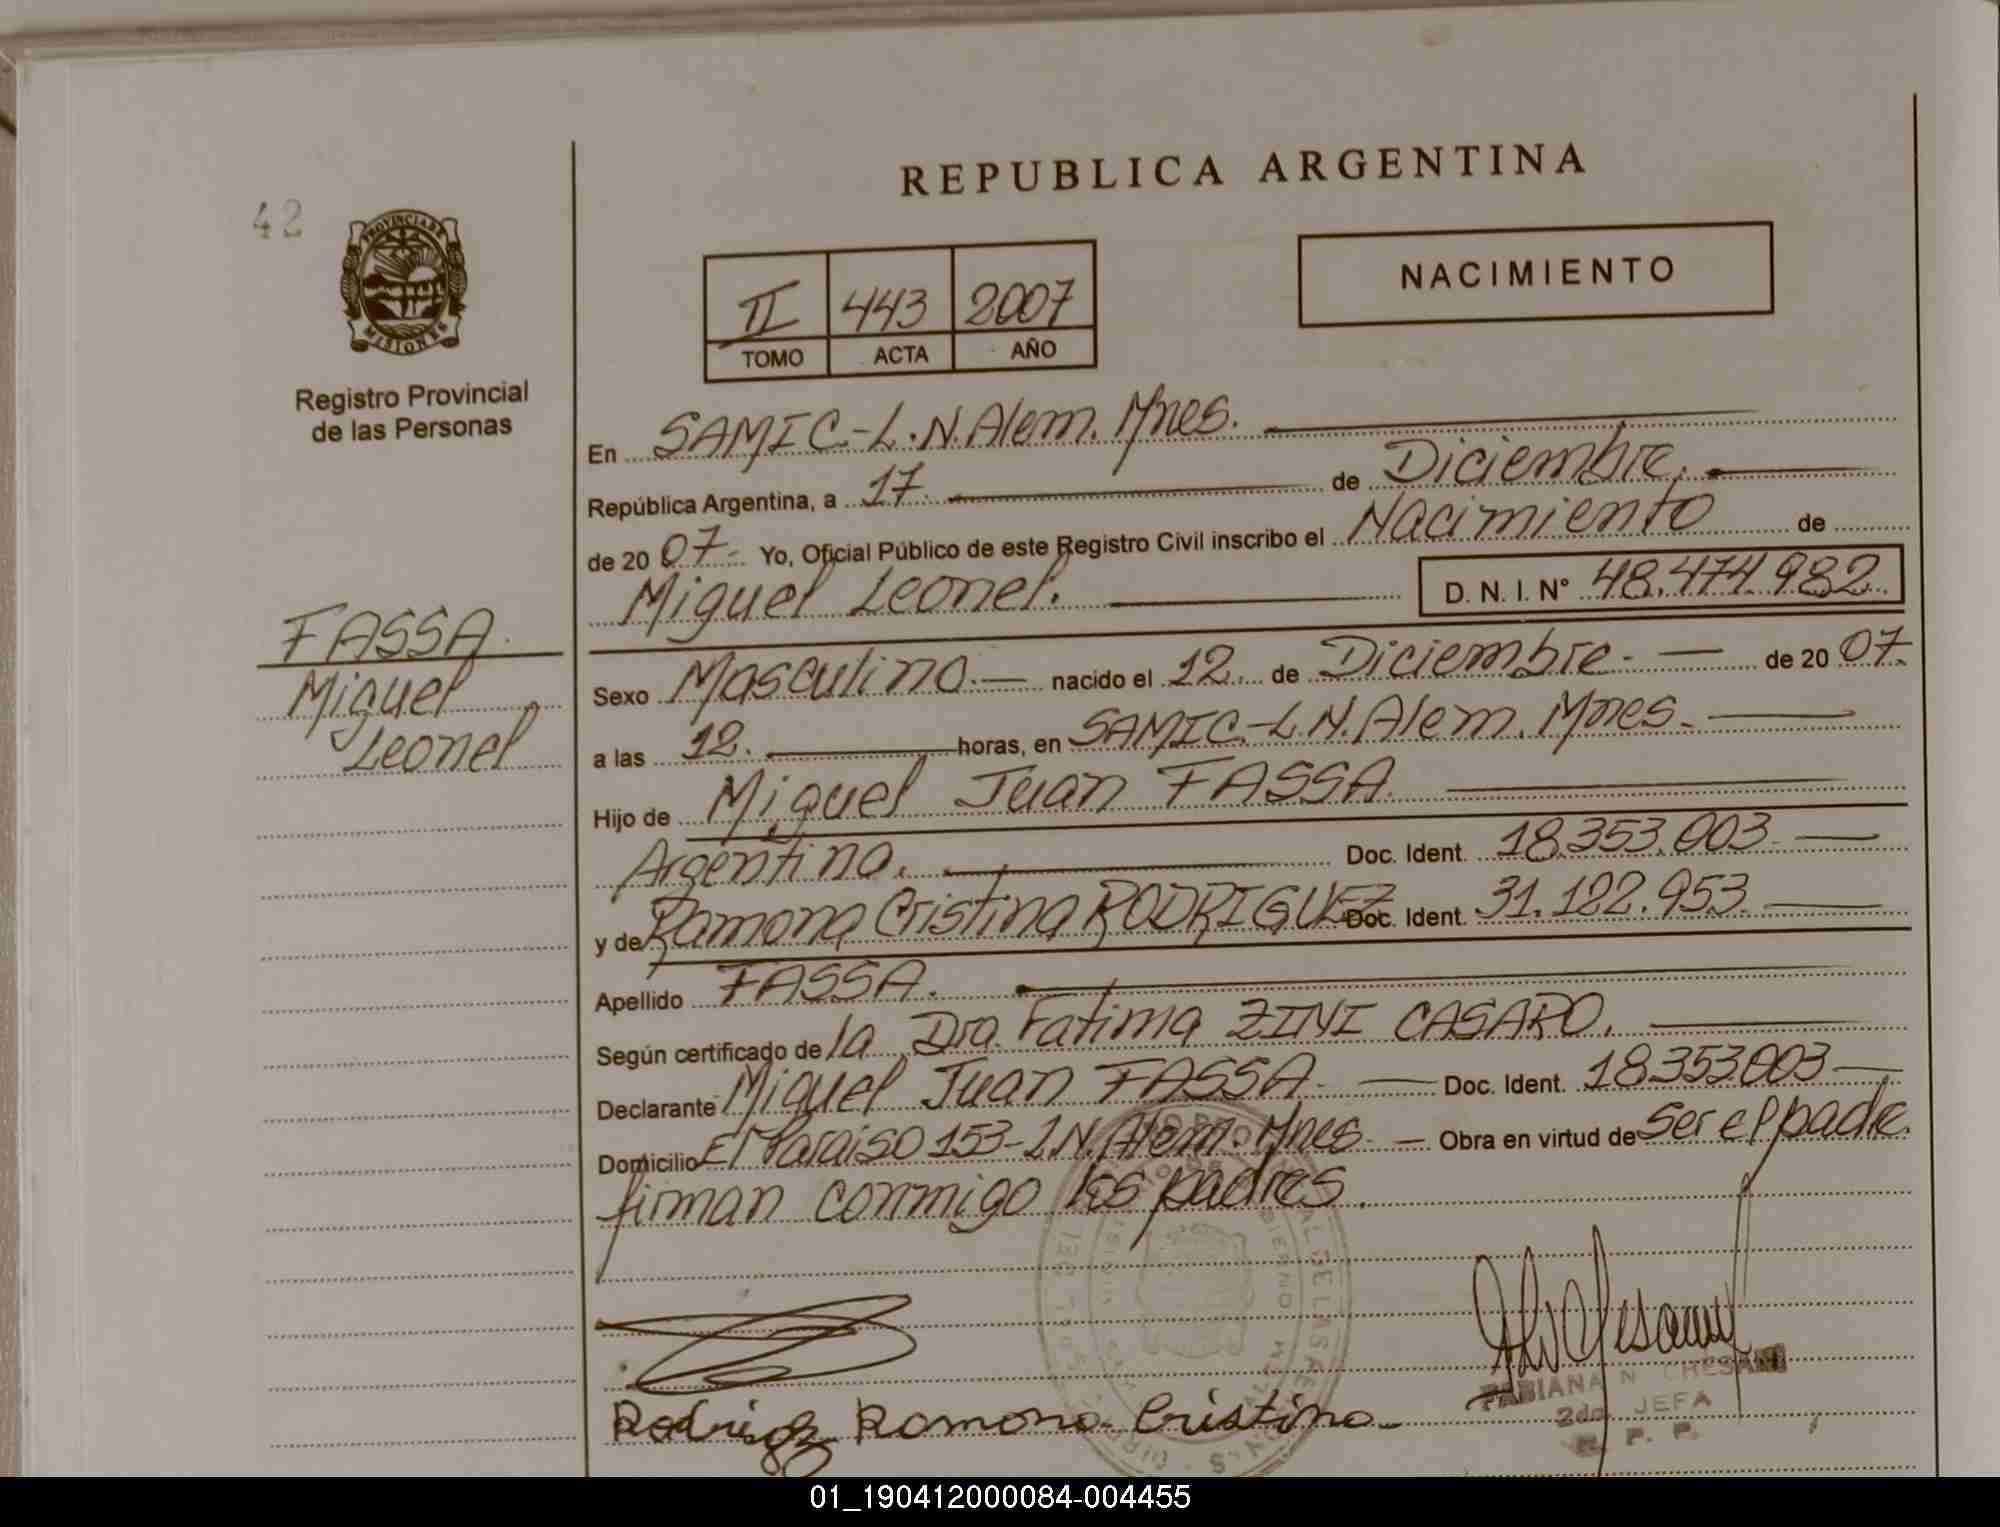 REPUBLICA ARGENTINA
42
PROVINCIA DE
MISIONES
Registro Provincial
de las Personas
NACIMIENTO
II 443 2007
TOMO ACTA AÑO
En SAMIC-L.N.Alem.Mnes.
República Argentina, a 17. de Diciembre.
de 20 07- Yo, Oficial Público de este Registro Civil inscribo el Nacimiento de
Miguel Leonel. D. N. I. N° 48.474.982.
FASSA.
Miguel
Leonel
Sexo Masculino.- nacido el 12. de Diciembre.- de 20 07.
a las 12. horas, en SAMIC-L.N.Alem.Mnes.
Hijo de Miguel Juan FASSA.
Argentino. Doc. Ident. 18.353.003.
y de Ramona Cristina RODRIGUEZ Doc. Ident. 31.122.953.
Apellido FASSA.
Según certificado de la Dra. Fatima ZINI CASARO.
Declarante Miguel Juan FASSA- Doc. Ident. 18353003-
Domicilio El Paraiso 153-L.N.Alem.Mnes- Obra en virtud de ser el padre.
firman conmigo los padres.
Ramona Cristina
FABIANA N CHESANI
2da. JEFA
R. P. P.
01_190412000084-004455